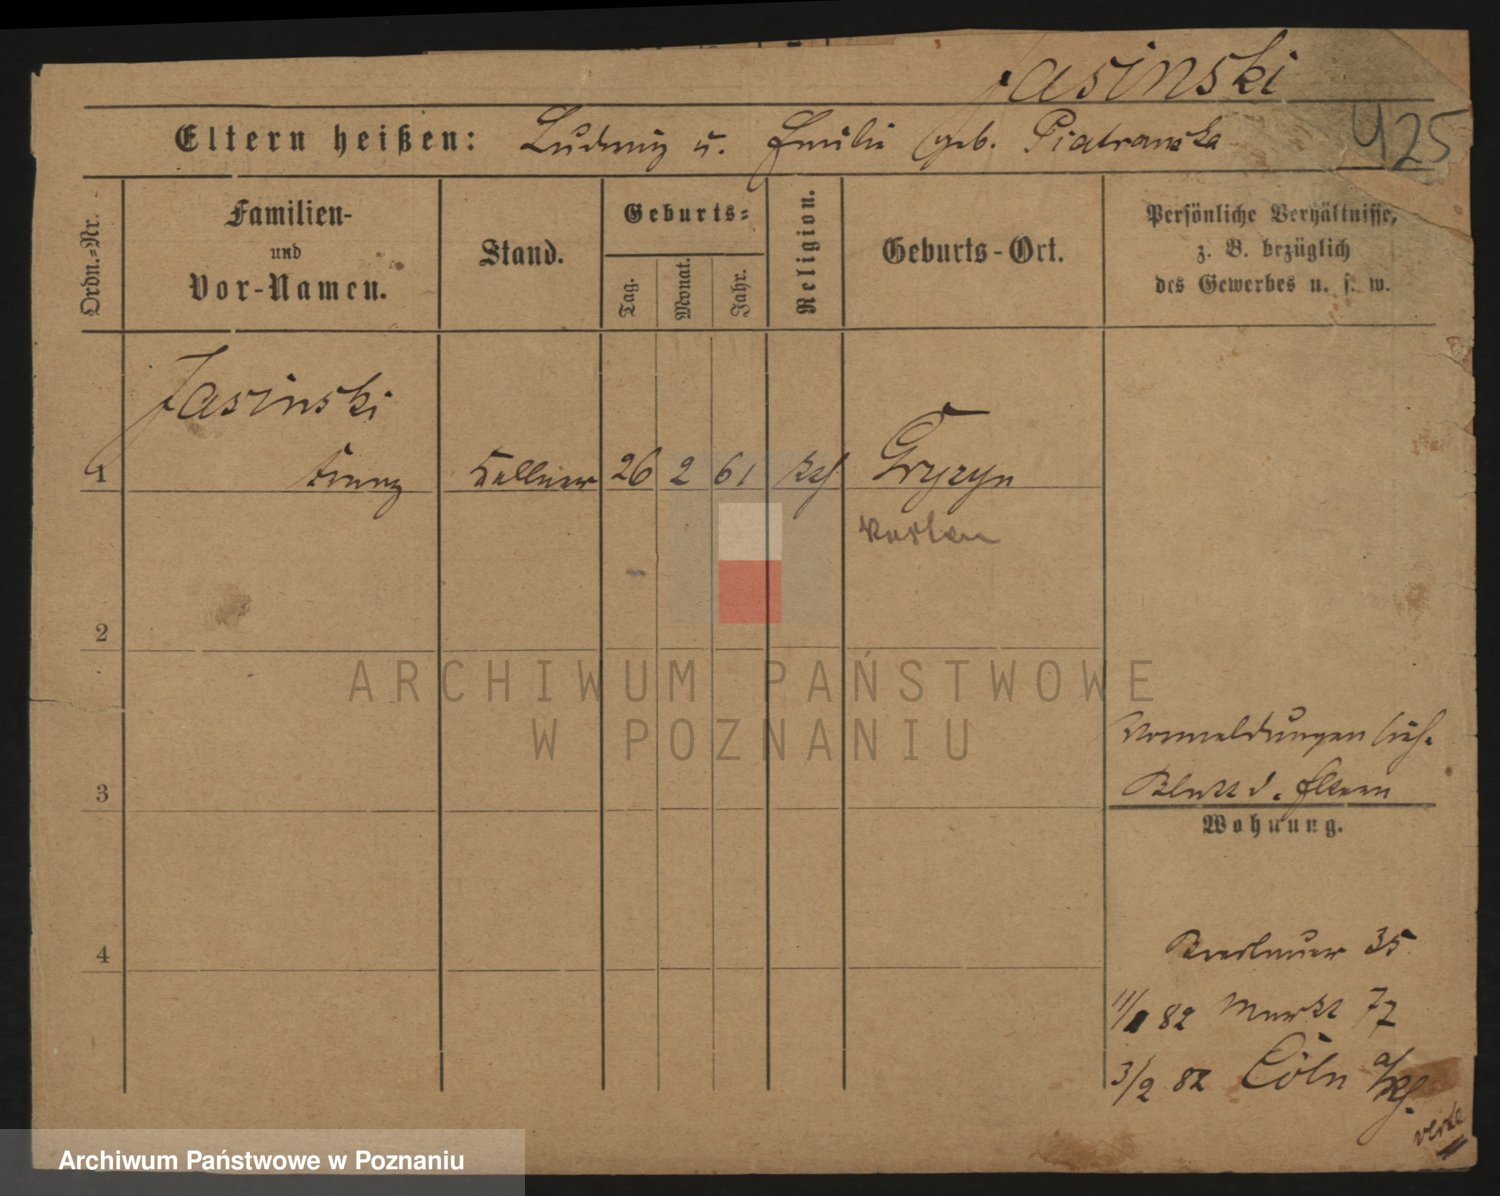 Jasinski
425
Eltern heißen: Ludwig u. Emilie geb. Piatrowska
Ordn.=Nr.
Familien-
und
Vor-Namen.
Stand.
Geburts=
Tag.
Monat.
Jahr.
Religion.
Geburts-Ort.
Persönliche Verhältnisse,
z. B. bezüglich
des Gewerbes u. s. w.
Jasinski
1 Franz Kellner 26 2 61 kth Gryzyn
Kosten
2
3
4
Vormeldungen sieh.
Blatt d. Eltern
Wohnung.
Breslauer 35
82 Markt 77
3/2 82 Cöln a/Rh.
ARCHIWUM PAŃSTWOWE
W POZNANIU
Archiwum Państwowe w Poznaniu